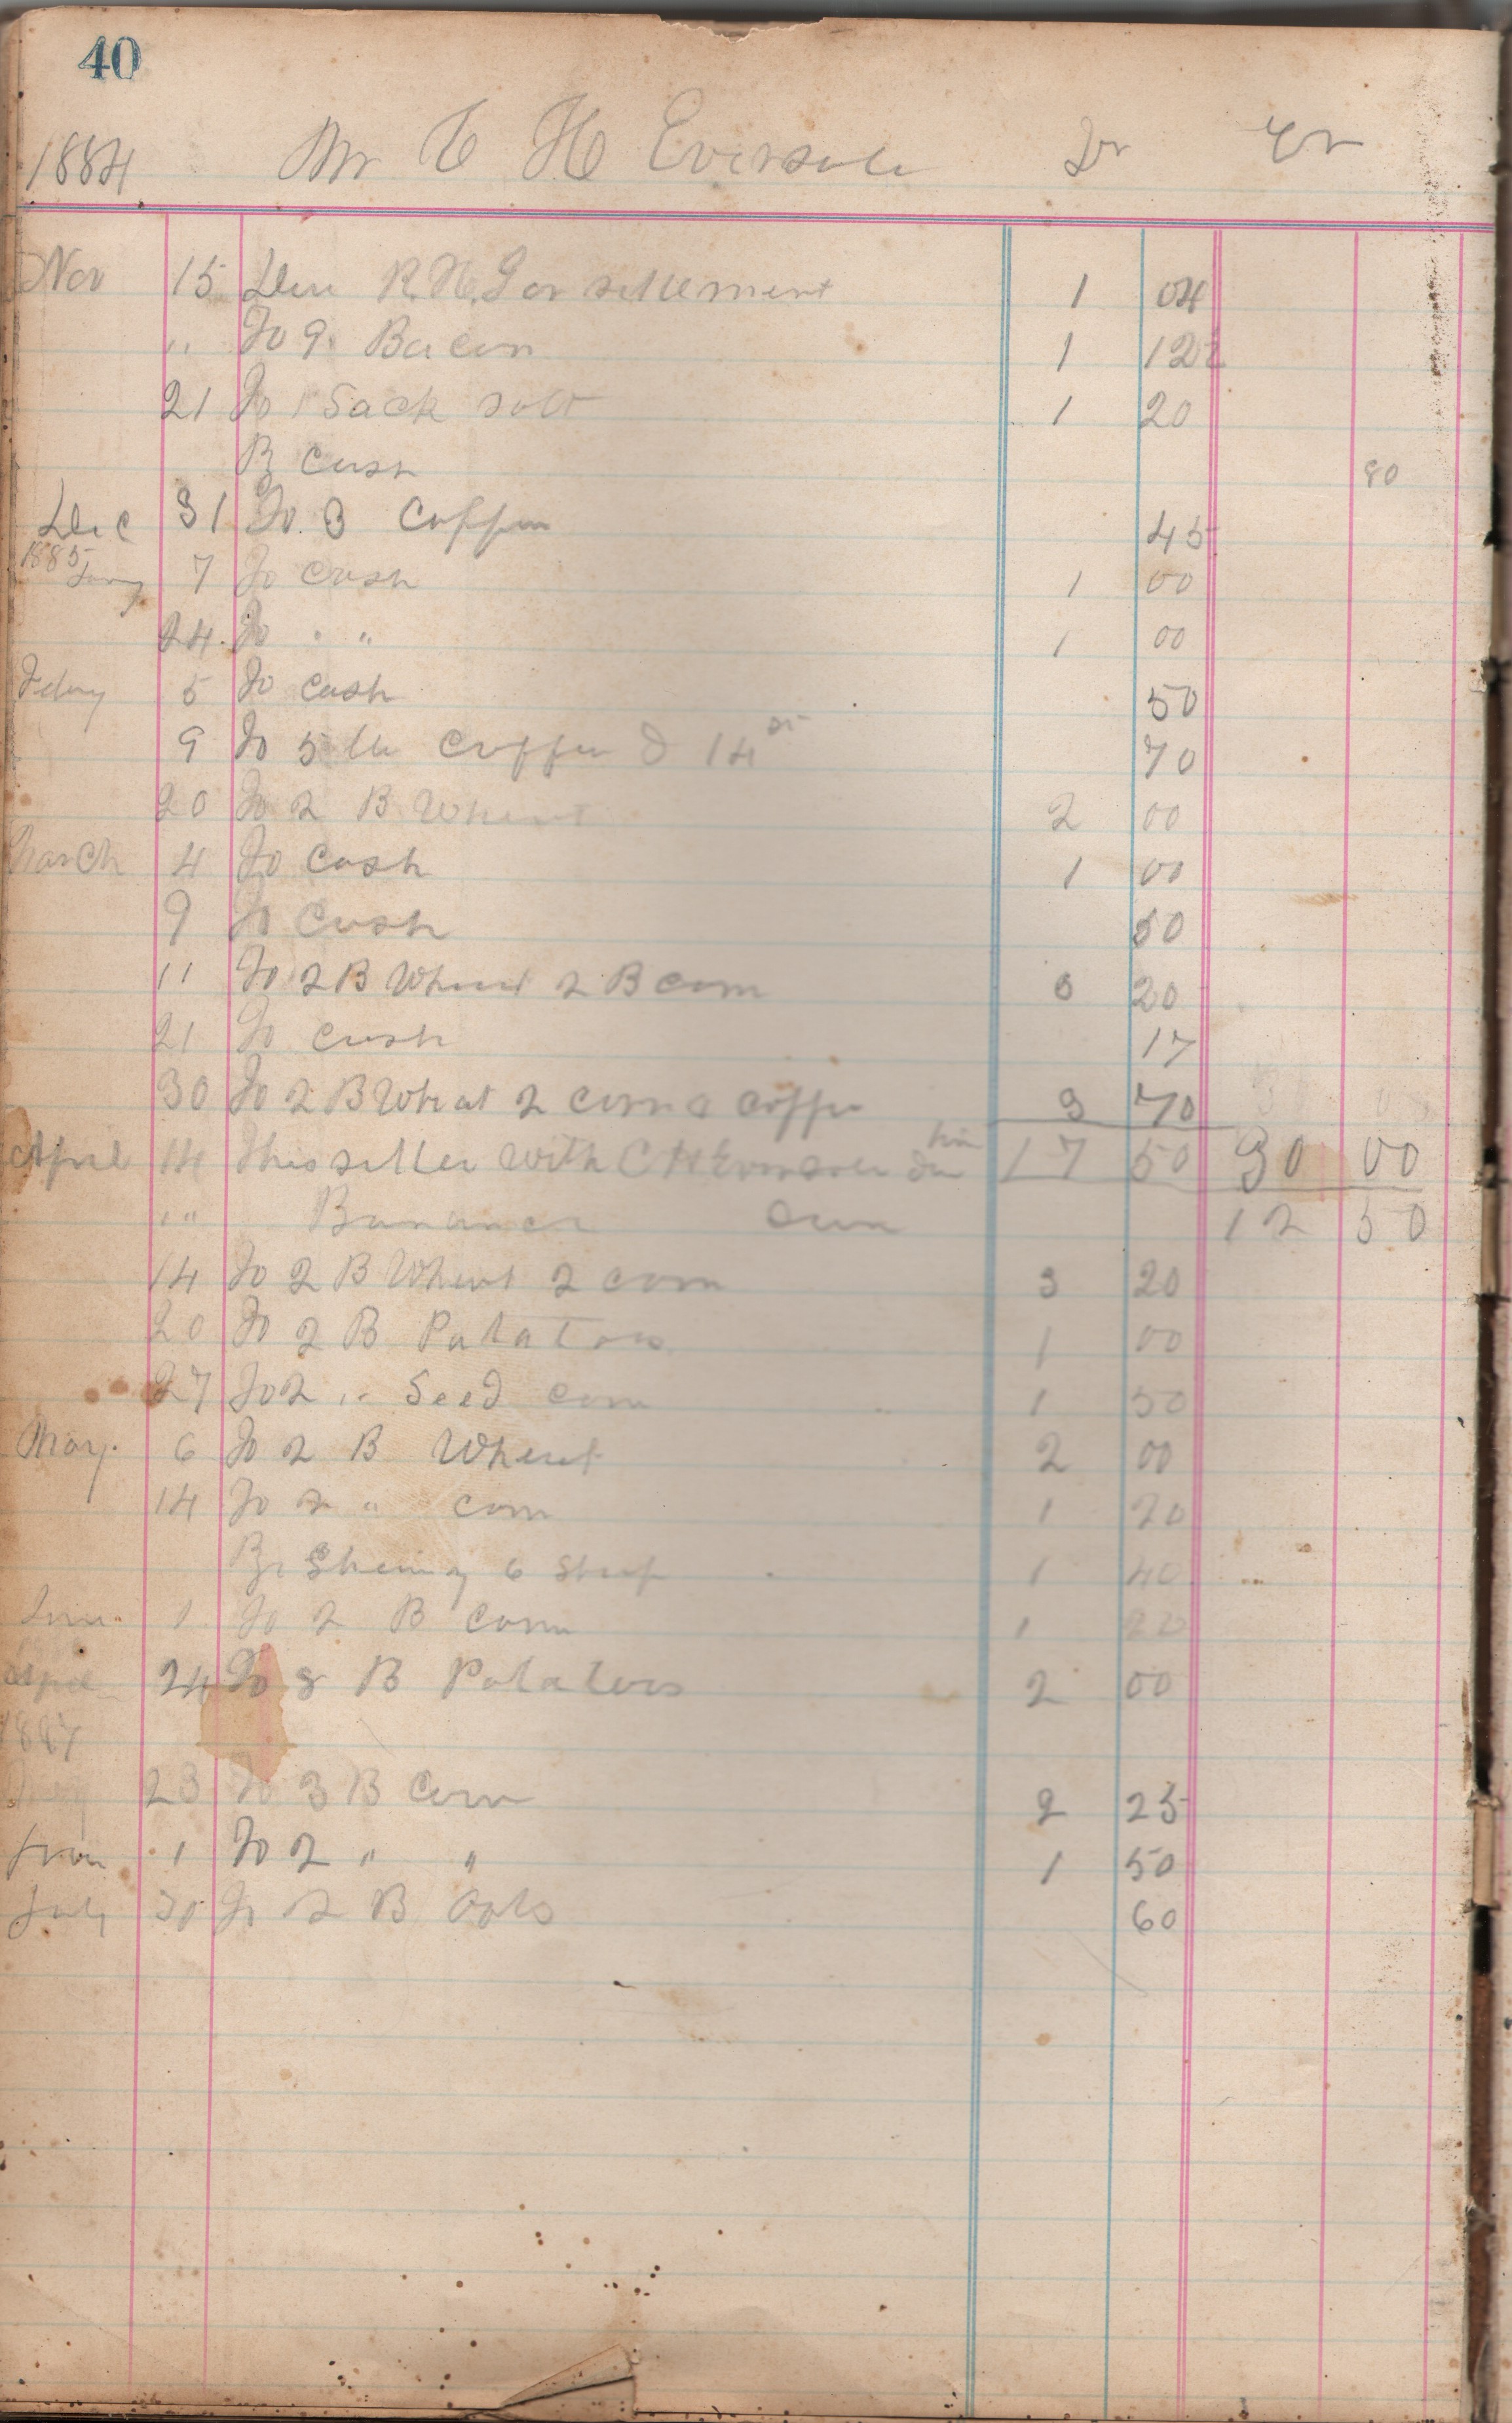 40
1884 Mr C H Eversole Dr Cr
Nov 15 Due R. H. J on settlement 1 04
" To 9. Bacon 1 12½
21 To 1 Sack salt 1 20
By Cash 80
Dec 31 To 3 Coffee 45
1885
Jany 7 To Cash 1 00
24. To " " 1 00
Febry 5 To Cash 50
9 To 5 lb Coffee @ 14 cts 70
20 To 2 B Wheat 2 00
March 4 To Cash 1 00
9 To Cash 50
11 To 2 B Wheat 2 B corn 3 20
21 To Cash 17
30 To 2 B Wheat 2 corn & coffee 3 70
April 14 This settled with C H Eversole due him 17 50 30 00
" Due 12 50
14 To 2 B Wheat 2 corn 3 20
20 To 2 B Patatoes 1 00
27 To 2 " Seed corn 1 50
May. 6 To 2 B Wheat 2 00
14 To 2 " corn 1 20
By Shearing 6 Sheep 1 40
June 1 To 2 B corn 1 20
April 24 To 8 B Potatoes 2 00
1887
23 To 3 B Corn 2 25
June 1 To 2 " " 1 50
July 30 To 2 B Oats 60